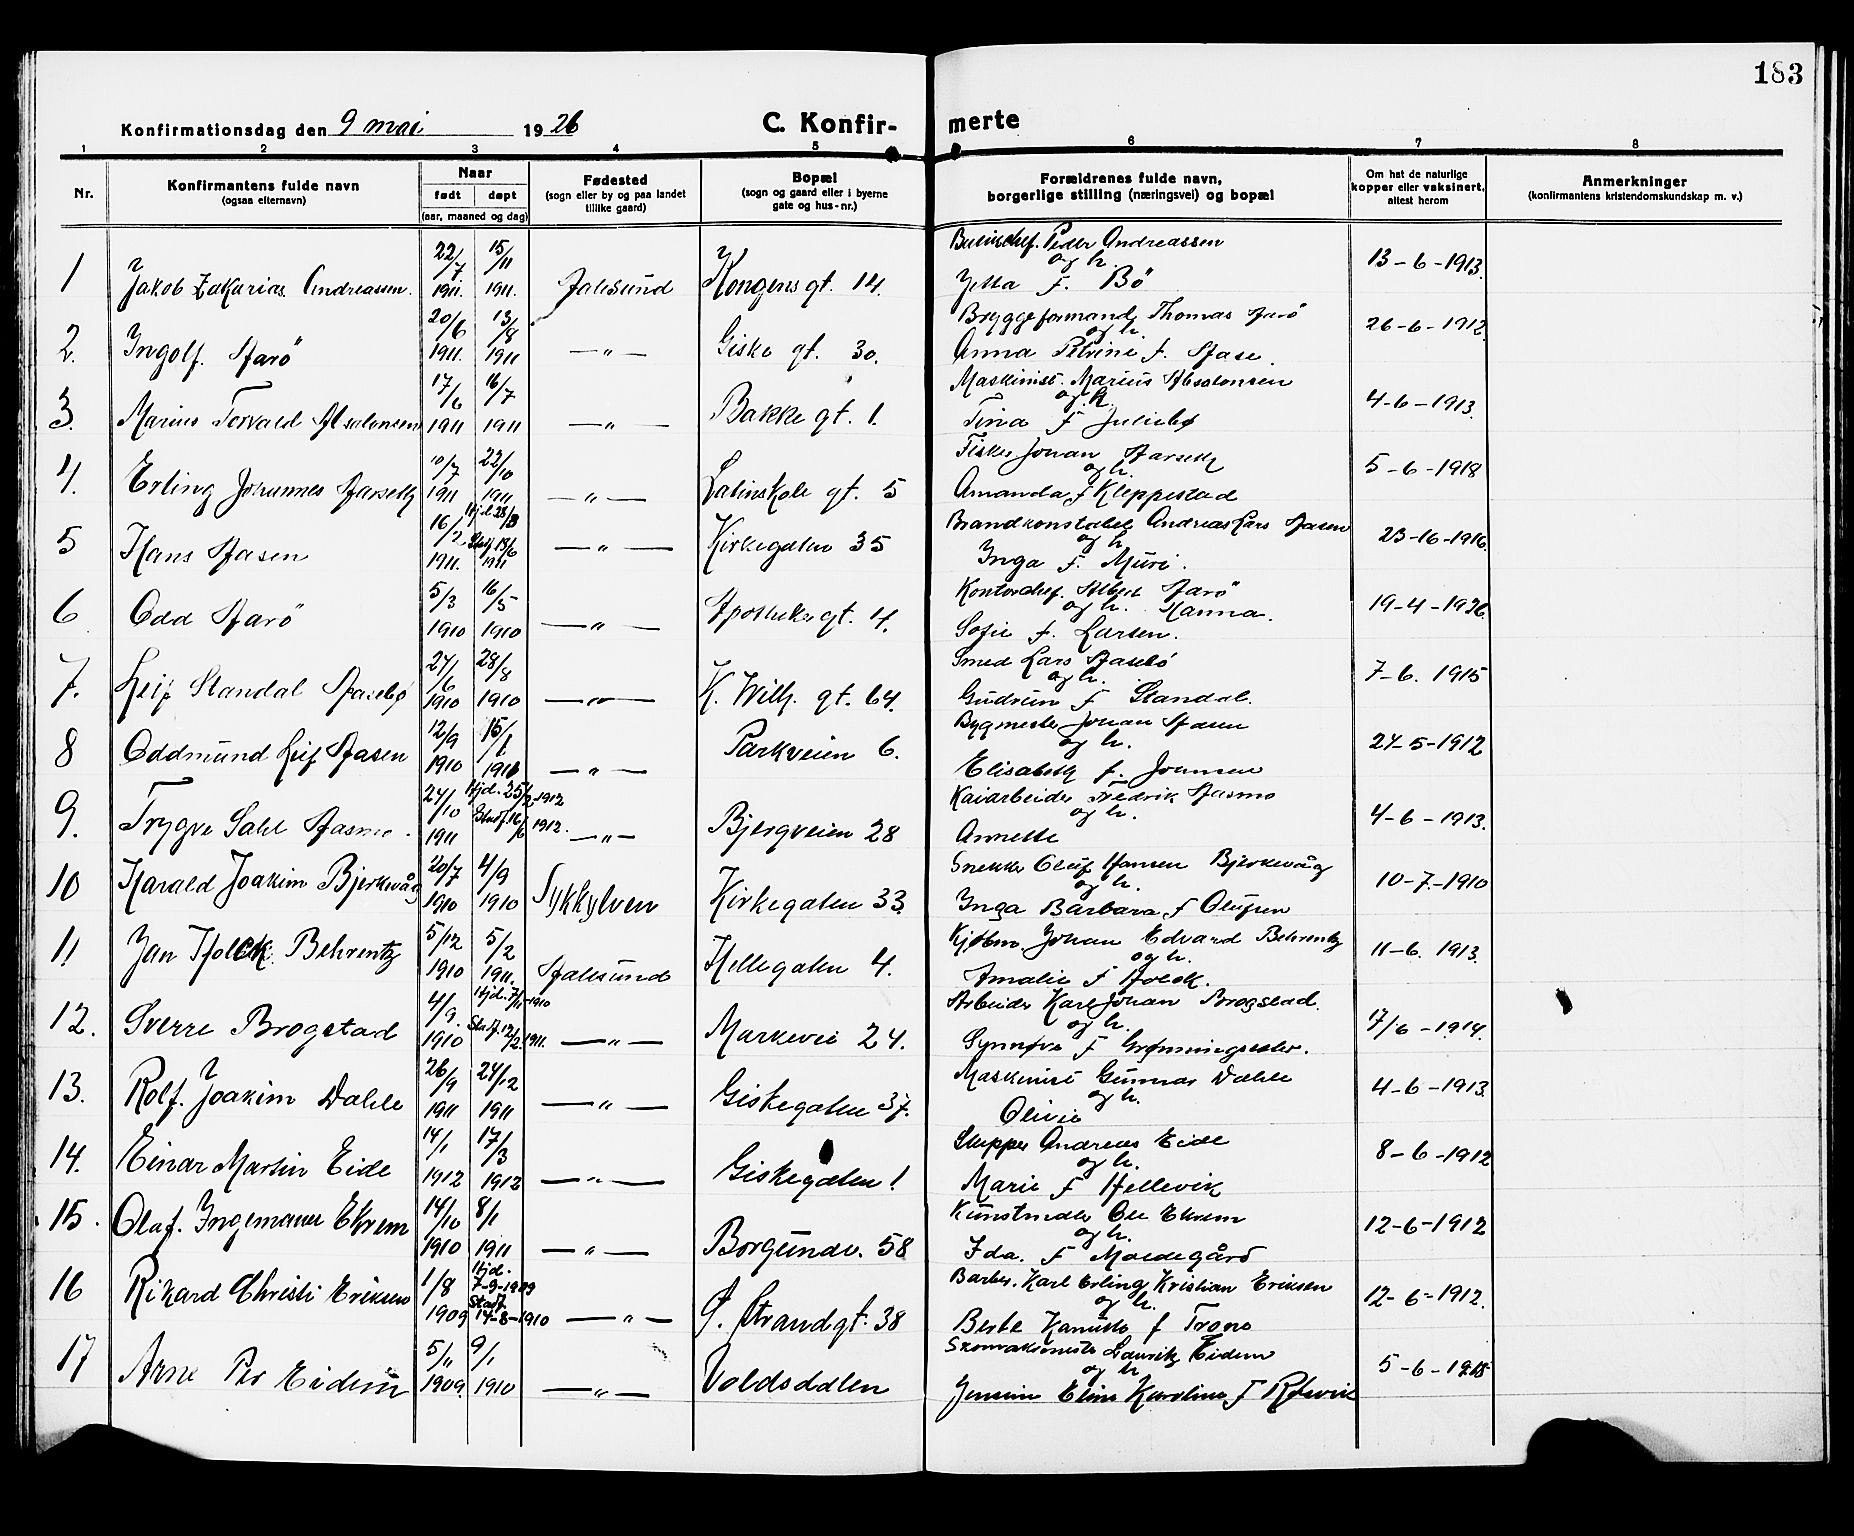 183
Konfirmationsdag den 9 mai 1926
C. Konfir- merte
1 2 3 4 5 6 7 8
Nr.
Konfirmantens fulde navn
(ogsaa efternavn)
Naar
født døpt
(aar, maaned og dag)
Fødested
(sogn eller by og paa landet
tillike gaard)
Bopæl
(sogn og gaard eller i byerne
gate og hus-nr.)
Forældrenes fulde navn,
borgerlige stilling (næringsvei) og bopæl
Om hat de naturlige
kopper eller vaksinert,
attest herom
Anmerkninger
(konfirmantens kristendomskundskap m. v.)
1 Jakob Zakarias Andreassen. 22/7 1911. 15/11 1911. Aalesund Kongens gt. 14. Peder Andreassen
og h.
Jetta f. Bö 13-6-1913.
2. Ingolf Aarö 20/6 1911. 13/8 1911 —"— Giske gt. 30. Bryggeformand Thomas Aarö
og h.
Anna Petrine f. Aase. 26-6-1912
3. Marius Torvald Absalonsen 17/6 1911 16/7 1911 —"— Bakke gt. 1. Maskinist. Marius Absalonsen
og h.
Tina f Juliebø 4-6-1913.
4. Erling Johannes Aarseth 10/7 1911 22/10 1911 —"— Latinskole gt. 5 Fisker Johan Aarseth
og h.
Amanda f Kleppestad 5-6-1918
5 Hans Aasen 16/2 1911. Hjd 28/3 Stadf 18/6 1911 —"— Kirkegaten 35 Brandkonstabel Andreas Lars Aasen
og h
Inga f. Muri. 23-16-1916.
6 Odd Aarö 5/3 1910 16/5 1910 —"— Apotheker gt. 4. Kontorchef. Albert Aarö
og h. Hanna.
Sofie f. Larsen. 19-4-1926
7. Leif Standal Aasebø 27/6 1910 28/8 1910 —"— K. Wilh. gt. 64. Smed Lars Aasebø
og h.
Gudrun f Standal. 7-6. 1915
8 Oddmund Leif Aasen 12/9 1910 15/1 1911 —"— Parkveien 6. Bygmester Johan Aasen
og h.
Elisabeth f. Johnsen 24-5-1912
9. Trygve Aasmo. 24/10 1911 Hjd. 25/2-1912 Stadf. 16/6 1912. —"— Bjergveien 28 Kaiarbeider Fredrik Aasmo
og h.
Annette 4-6-1913.
10 Harald Joakim Bjerkevåg 20/7 1910 4/9 1910 Sykkylven Kirkegaten 33. Snekker Oluf Hansen Bjerkevåg
og h.
Inga Barbara f Olufsen 10-7-1910
11 Jan Holck. Behrentz 5/12 1910 5/2 1911. Aalesund Hellegaten 4. Kjøbm. Johan Edvard Behrentz
og h.
Amalie f Holck. 11-6. 1913.
12. Sverre Brogstad 4/9. 1910 Hjd. 7/11-1910 Stadf. 12/2.1911. —"— Markevei 24. Arbeider Karl Johan Brogstad.
og h.
Synnøve f Grønningsæter. 17/6-1914.
13. Rolf. Joakim Dahle 26/9 1911 24/12 1911 —"— Giskegaten 37. Maskinist Gunnar Dahle
og h.
Olivie 4-6-1913.
14. Einar Martin Eide 14/1 1912 17/3 1912 —"— Giskegaten 1 Skipper Andreas Eide
og h.
Marie f Hellevik 8-6-1912
15. Olaf. Ingemann Ekrem 14/10 1910 8/1 1911 —"— Borgundv. 58 Kunstmaler Ole Ekrem
og h.
Ida. f Moldegård 12-6-1912
16 Rikard Christi Eriksen 1/8 1909 Hjd. 7-9-1909 Stadf. 14-8-1910 —"— Ø. Strandgt. 38 Barber. Karl Erling Kristian Eriksen
og h.
Berte f Trono 12-6-1912.
17 Arne Per Eidem 5/11 1909. 9/1 1910 —"— Voldsdalen Laurits Eidem
og h
Eline Karoline f Røsvik 5-6-1915